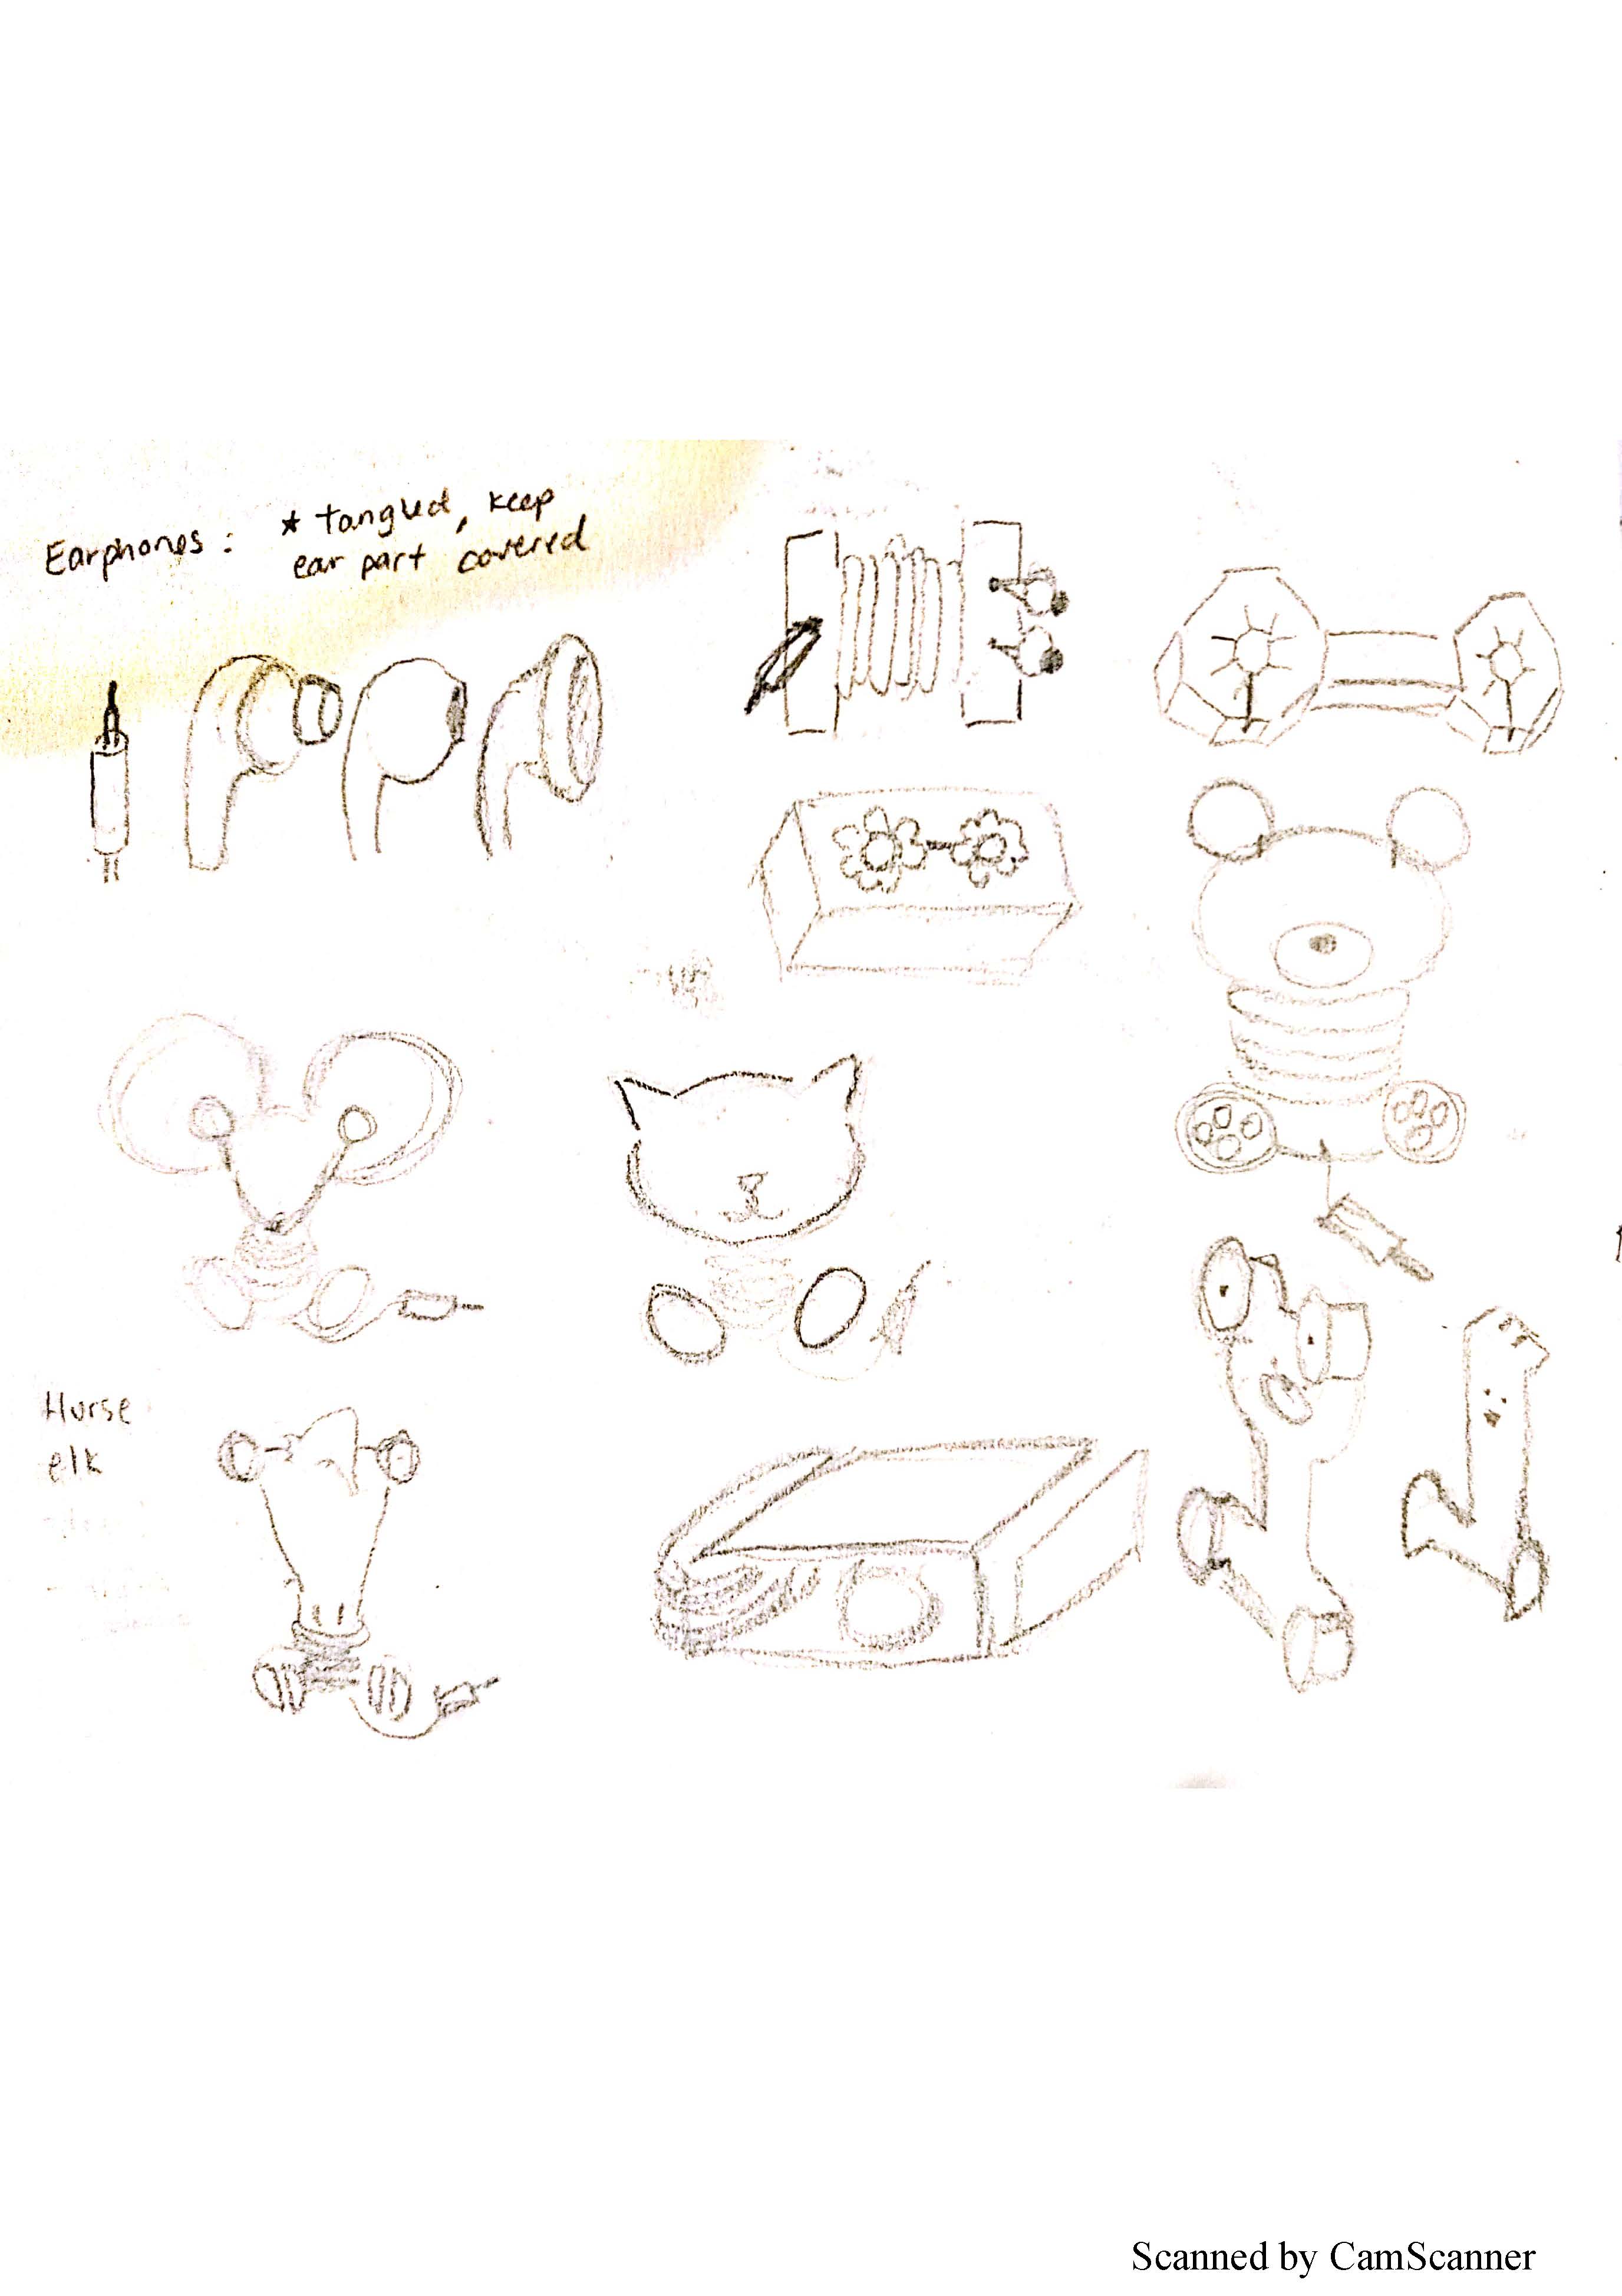 Earphones : * tangled, keep
ear part covered
Horse
elk
Scanned by CamScanner